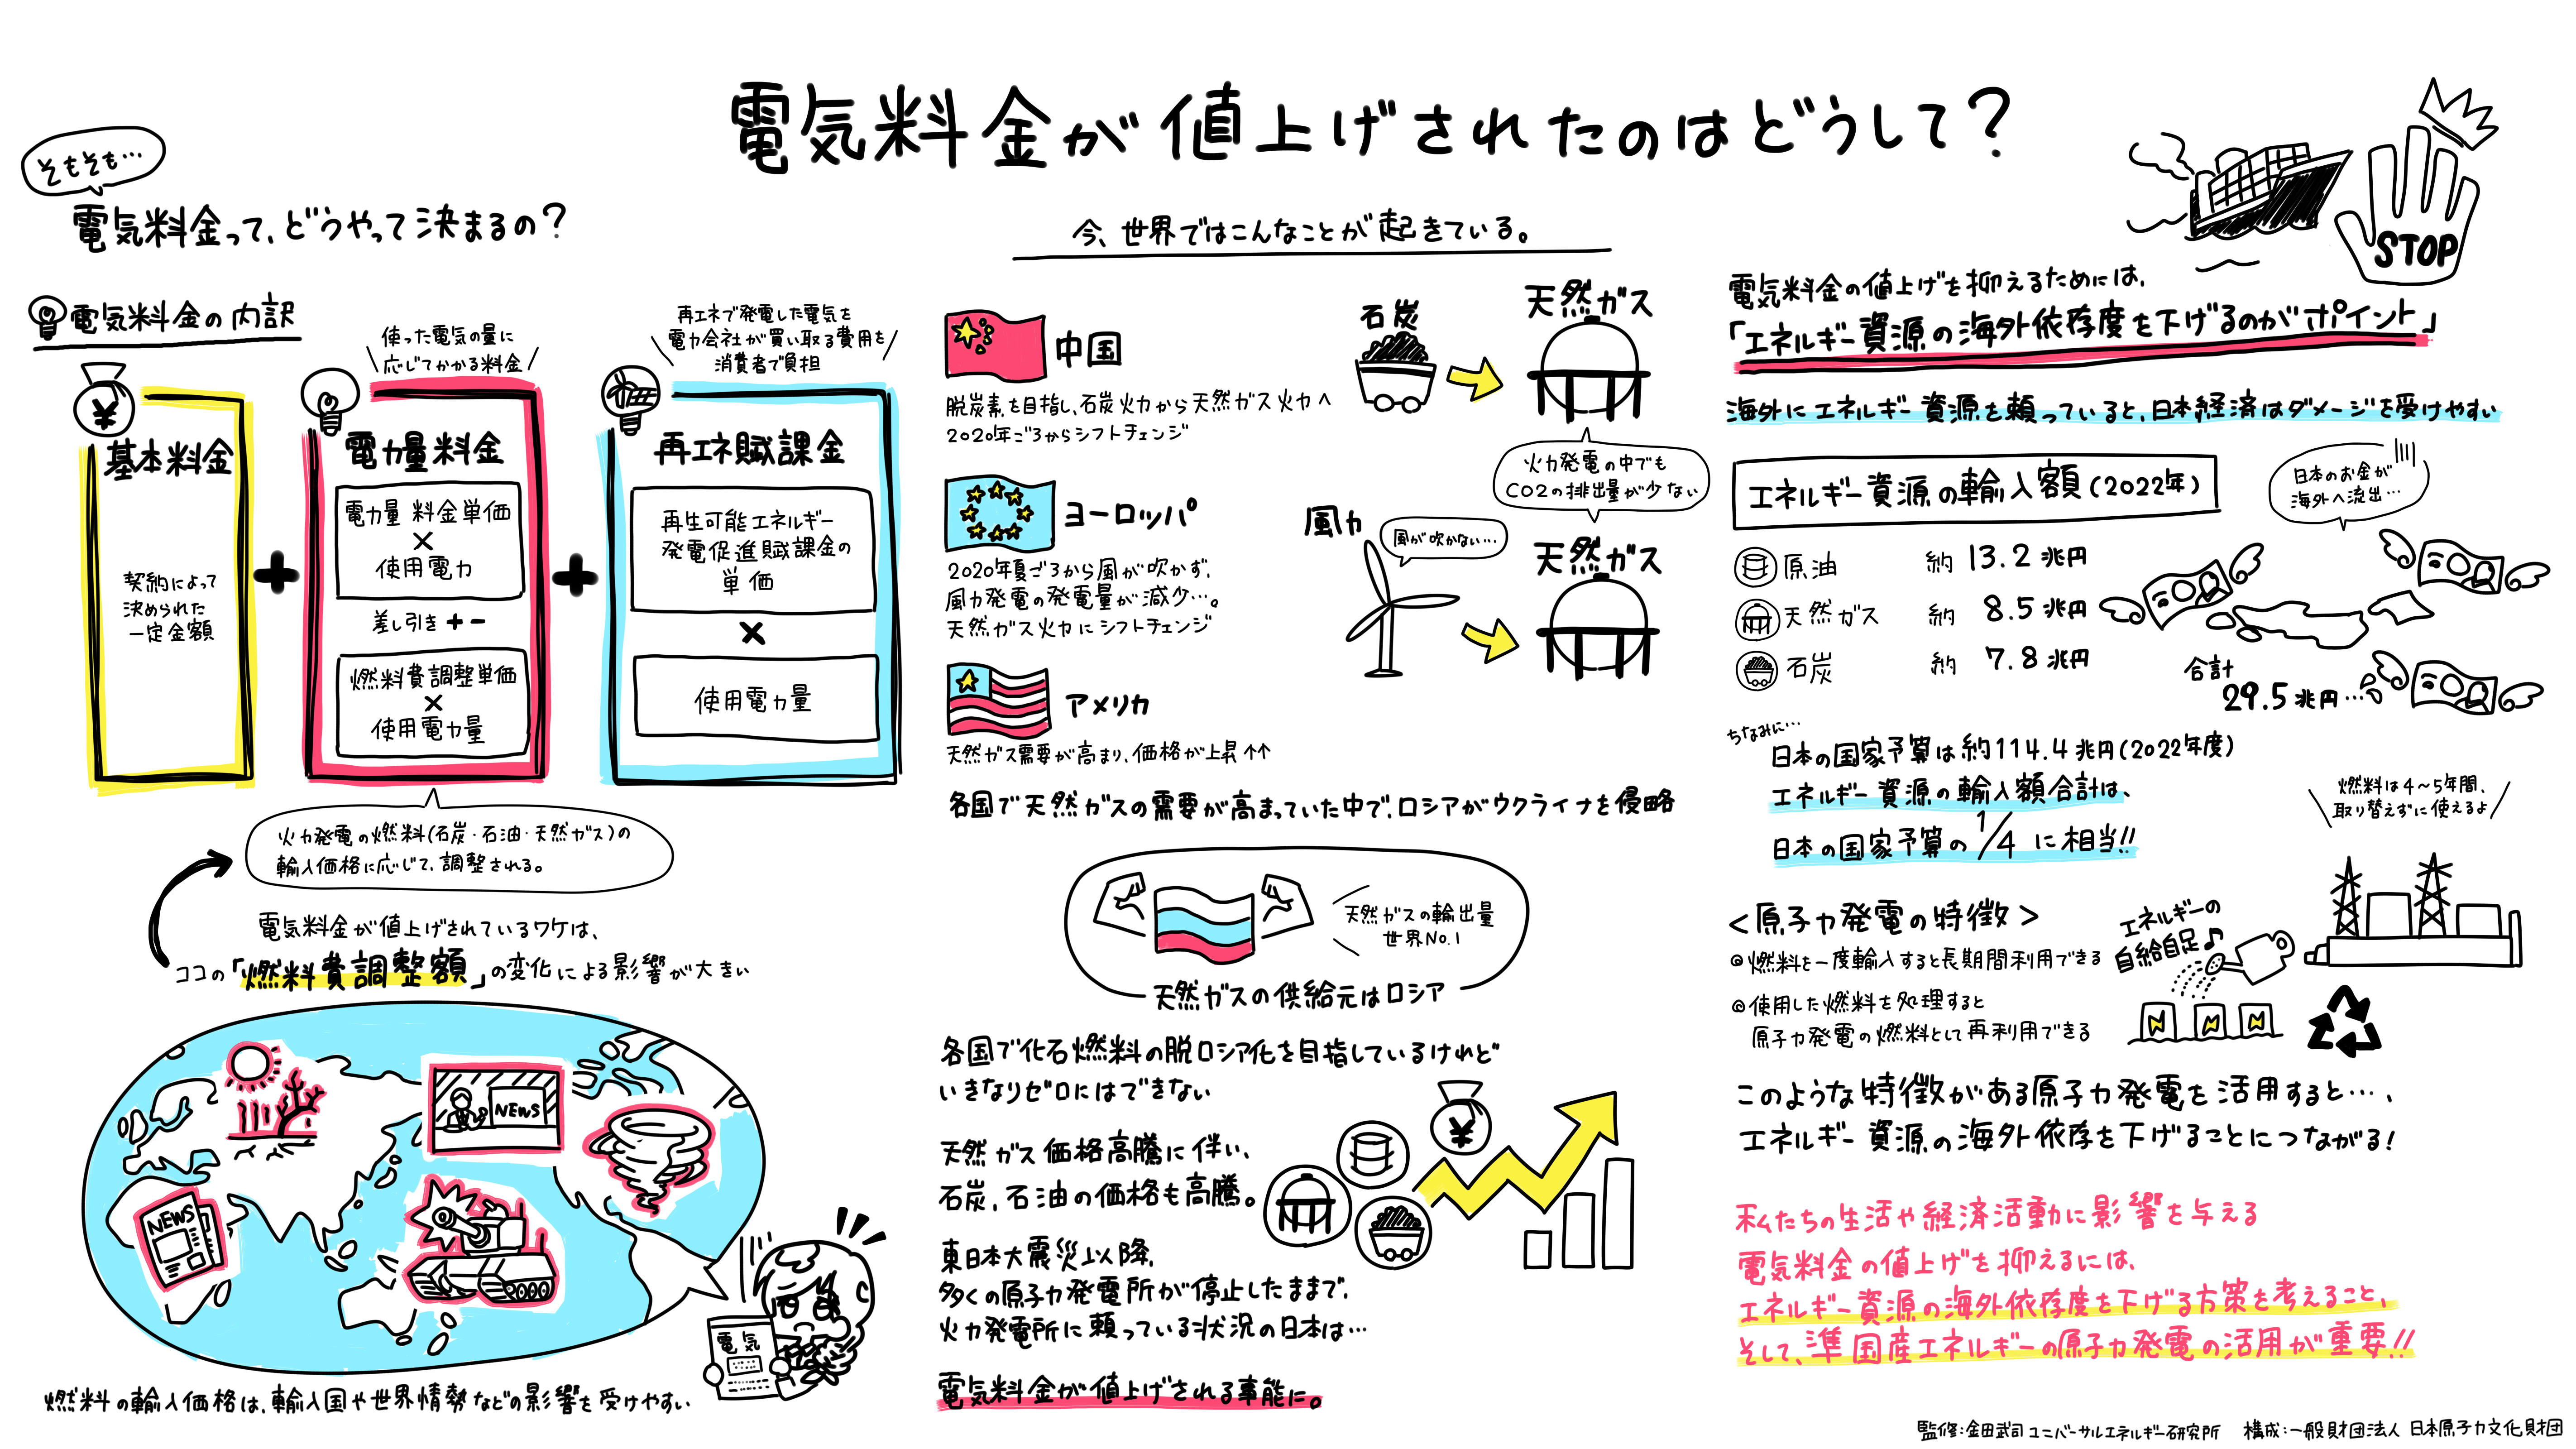 電気料金が値上げされたのはどうして?
そもそも…
電気料金って、どうやって決まるの?
電気料金の内訳
¥
基本料金
契約によって
決められた
一定金額
+
使った電気の量に
応じてかかる料金
電力量料金
電力量料金単価
×
使用電力
差し引き + −
燃料費調整単価
×
使用電力量
+
再エネで発電した電気を
電力会社が買い取る費用を
消費者で負担
再エネ賦課金
再生可能エネルギー
発電促進賦課金の
単価
×
使用電力量
火力発電の燃料(石炭・石油・天然ガス)の
輸入価格に応じて、調整される。
電気料金が値上げされているワケは、
ココの「燃料費調整額」の変化による影響が大きい
NEWS
NEWS
電気
燃料の輸入価格は、輸入国や世界情勢などの影響を受けやすい
今、世界ではこんなことが起きている。
中国
脱炭素を目指し、石炭火力から天然ガス火力へ
2020年ごろからシフトチェンジ
石炭
天然ガス
火力発電の中でも
CO2の排出量が少ない
ヨーロッパ
2020年夏ごろから風が吹かず、
風力発電の発電量が減少…。
天然ガス火力にシフトチェンジ
風力
風が吹かない…
天然ガス
アメリカ
天然ガス需要が高まり、価格が上昇↑↑
各国で天然ガスの需要が高まっていた中で、ロシアがウクライナを侵略
天然ガスの輸出量
世界No.1
天然ガスの供給元はロシア
各国で化石燃料の脱ロシア化を目指しているけれど
いきなりゼロにはできない
天然ガス価格高騰に伴い、
石炭、石油の価格も高騰。
¥
東日本大震災以降、
多くの原子力発電所が停止したままで、
火力発電所に頼っている状況の日本は…
電気料金が値上げされる事態に。
STOP
電気料金の値上げを抑えるためには、
「エネルギー資源の海外依存度を下げるのがポイント」
海外にエネルギー資源を頼っていると、日本経済はダメージを受けやすい
エネルギー資源の輸入額(2022年)
日本のお金が
海外へ流出…
原油 約 13.2兆円
天然ガス 約 8.5兆円
石炭 約 7.8兆円
合計
29.5兆円…
ちなみに…
日本の国家予算は約114.4兆円(2022年度)
エネルギー資源の輸入額合計は、
日本の国家予算の1/4に相当!!
燃料は4〜5年間、
取り替えずに使えるよ
<原子力発電の特徴>
◎燃料を一度輸入すると長期間利用できる
◎使用した燃料を処理すると
原子力発電の燃料として再利用できる
エネルギーの
自給自足♪
このような特徴がある原子力発電を活用すると…、
エネルギー資源の海外依存を下げることにつながる!
私たちの生活や経済活動に影響を与える
電気料金の値上げを抑えるには、
エネルギー資源の海外依存度を下げる方策を考えること、
そして、準国産エネルギーの原子力発電の活用が重要!!
監修:金田武司 ユニバーサルエネルギー研究所 構成:一般財団法人 日本原子力文化財団